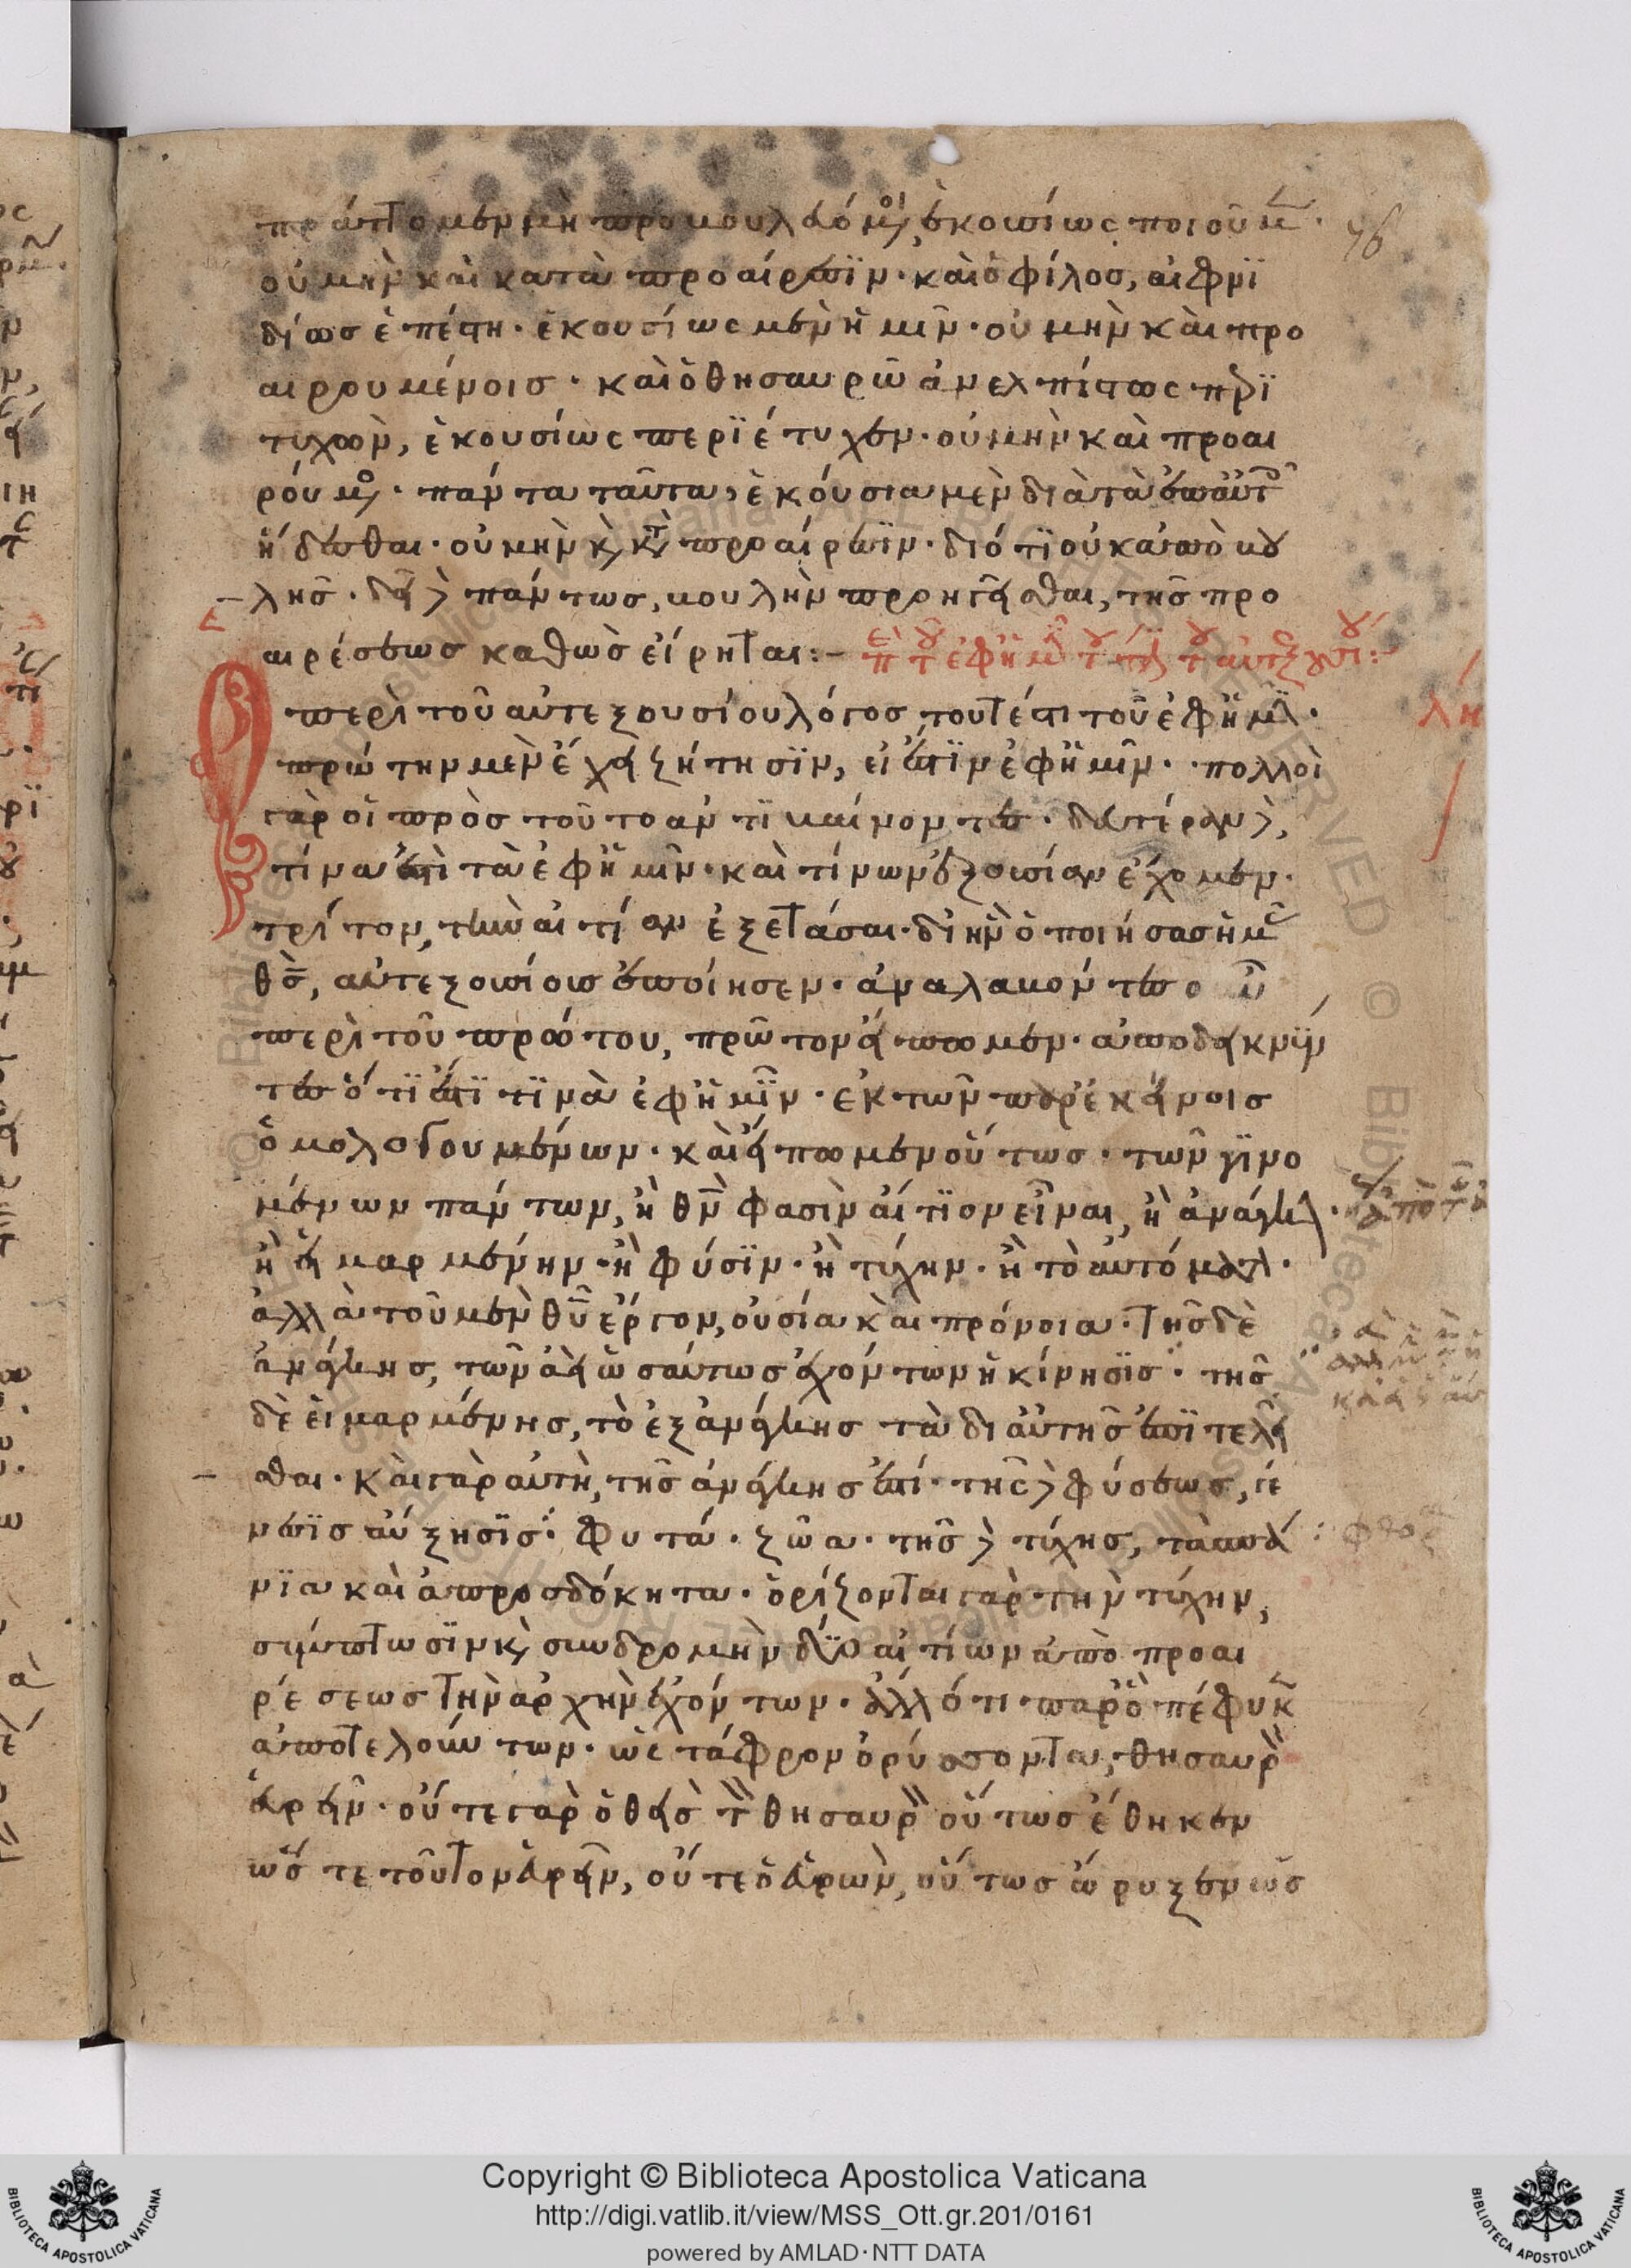 πράττομεν μὴ προβουλευόμενοι, ἑκουσίως ποιοῦμεν·
οὐ μὴν καὶ κατὰ προαίρεσϊν· καὶ ὁ φίλος, αἰφνϊ
δίως ἐπέστη· ἑκουσίως μὲν ἡμῖν· οὐ μὴν καὶ προ
αιρουμένοις· καὶ ὁ θησαυρῶ ἀνελπίστως περϊ
τυχὼν, ἑκουσίως περϊέτυχεν· οὐ μὴν καὶ προαι
ρούμενος· πάντα ταῦτα, ἑκούσια μὲν διὰ τὸ ἐπ' αὐτοῖς
ἥδεσθαι· οὐ μὴν καὶ κατὰ προαίρεσϊν· διότϊ οὐκ ἀπὸ βου
λῆς· δεῖ δὲ πάντως, βουλὴν προηγεῖσθαι, τῆς προ
αιρέσεως καθὼς εἴρηται:– περὶ τοῦ ἐφ' ἡμῖν τουτέστι τοῦ αὐτεξουσίου:–
περὶ τοῦ αὐτεξουσίου λόγος τουτέστι τοῦ ἐφ' ἡμῖν·
πρώτην μὲν ἔχει ζήτησϊν, εἰ ἔστϊν ἐφ' ἡμῖν· πολλοὶ
γὰρ οἱ πρὸς τοῦτο ἀντϊβαίνοντες· δευτέραν δὲ,
τίνα ἐστὶ τὰ ἐφ' ἡμῖν· καὶ τίνων ἐξουσίαν ἔχομεν·
τρίτον, τὴν αἰτίαν ἐξετάσαι· δι' ἣν ὁ ποιήσας ἡμᾶς
θς, αὐτεξουσίους ἐποίησεν· ἀναλαβόντες οὖν
περὶ τοῦ πρώτου, πρῶτον εἴπωμεν· ἀποδεικνύν
τες ὅτϊ ἔστϊ τϊνὰ ἐφ' ἡμῖν· ἐκ τῶν παρ' ἐκείνοις
ὁμολογουμένων· καὶ εἴπωμεν οὕτως· τῶν γϊνο
μένων πάντων, ἢ θν φασὶν αἴτϊον εἶναι, ἢ ἀνάγκην·
ἢ εἱμαρμένην· ἢ φύσϊν· ἢ τύχην· ἢ τὸ αὐτόματον·
ἀλλὰ τοῦ μὲν θυ ἔργον, οὐσία καὶ πρόνοια· τῆς δὲ
ἀνάγκης, τῶν ἀεὶ ὡσαύτως ἐχόντων ἡ κίνησϊς· τῆς
δὲ εἱμαρμένης, τὸ ἐξ ἀνάγκης τὰ δι' αὐτῆς ἐπϊτελεῖ
σθαι· καὶ γὰρ αὐτὴ, τῆς ἀνάγκης ἐστί· τῆς δὲ φύσεως, γέ
νεσϊς αὔξησϊς· φυτά· ζῶα· τῆς δὲ τύχης, τὰ σπά
νϊα καὶ ἀπροσδόκητα· ὁρίζονται γὰρ τὴν τύχην,
σύμπτωσϊν καὶ συνδρομὴν δύο αἰτίων ἀπὸ προαι
ρέσεως τὴν ἀρχὴν ἐχόντων· ἄλλό τι παρ' ὃ πέφυκεν
ἀποτελούντων· ὡς τάφρον ὀρύσσοντα, θησαυρὸν
εὑρεῖν· οὔτε γὰρ ὁ θεὶς τὸν θησαυρὸν οὕτως ἔθηκεν
ὥστε τοῦτον εὑρεῖν, οὔτε ὁ εὑρὼν, οὕτως ὤρυξεν ὡς
Copyright © Biblioteca Apostolica Vaticana
http://digi.vatlib.it/view/MSS_Ott.gr.201/0161
powered by AMLAD·NTT DATA